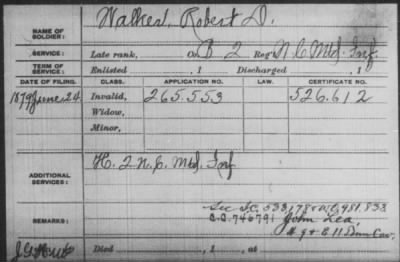 NAME OF SOLDIER: Walker, Robert D.
SERVICE: Late rank, Co. B 2 Reg't N.C. Mtd. Inf.
TERM OF SERVICE: Enlisted , 1 Discharged , 1
DATE OF FILING. CLASS. APPLICATION NO. LAW. CERTIFICATE NO.
1879 June 24 Invalid, 265.553 526.612
Widow,
Minor,
ADDITIONAL SERVICES: H. 2 N.C. Mtd. Inf
REMARKS: See S.C. 533,178 981.833
C.C. 746791 John Lea
& B. 11 Tenn Cav.
Died , 1 , at